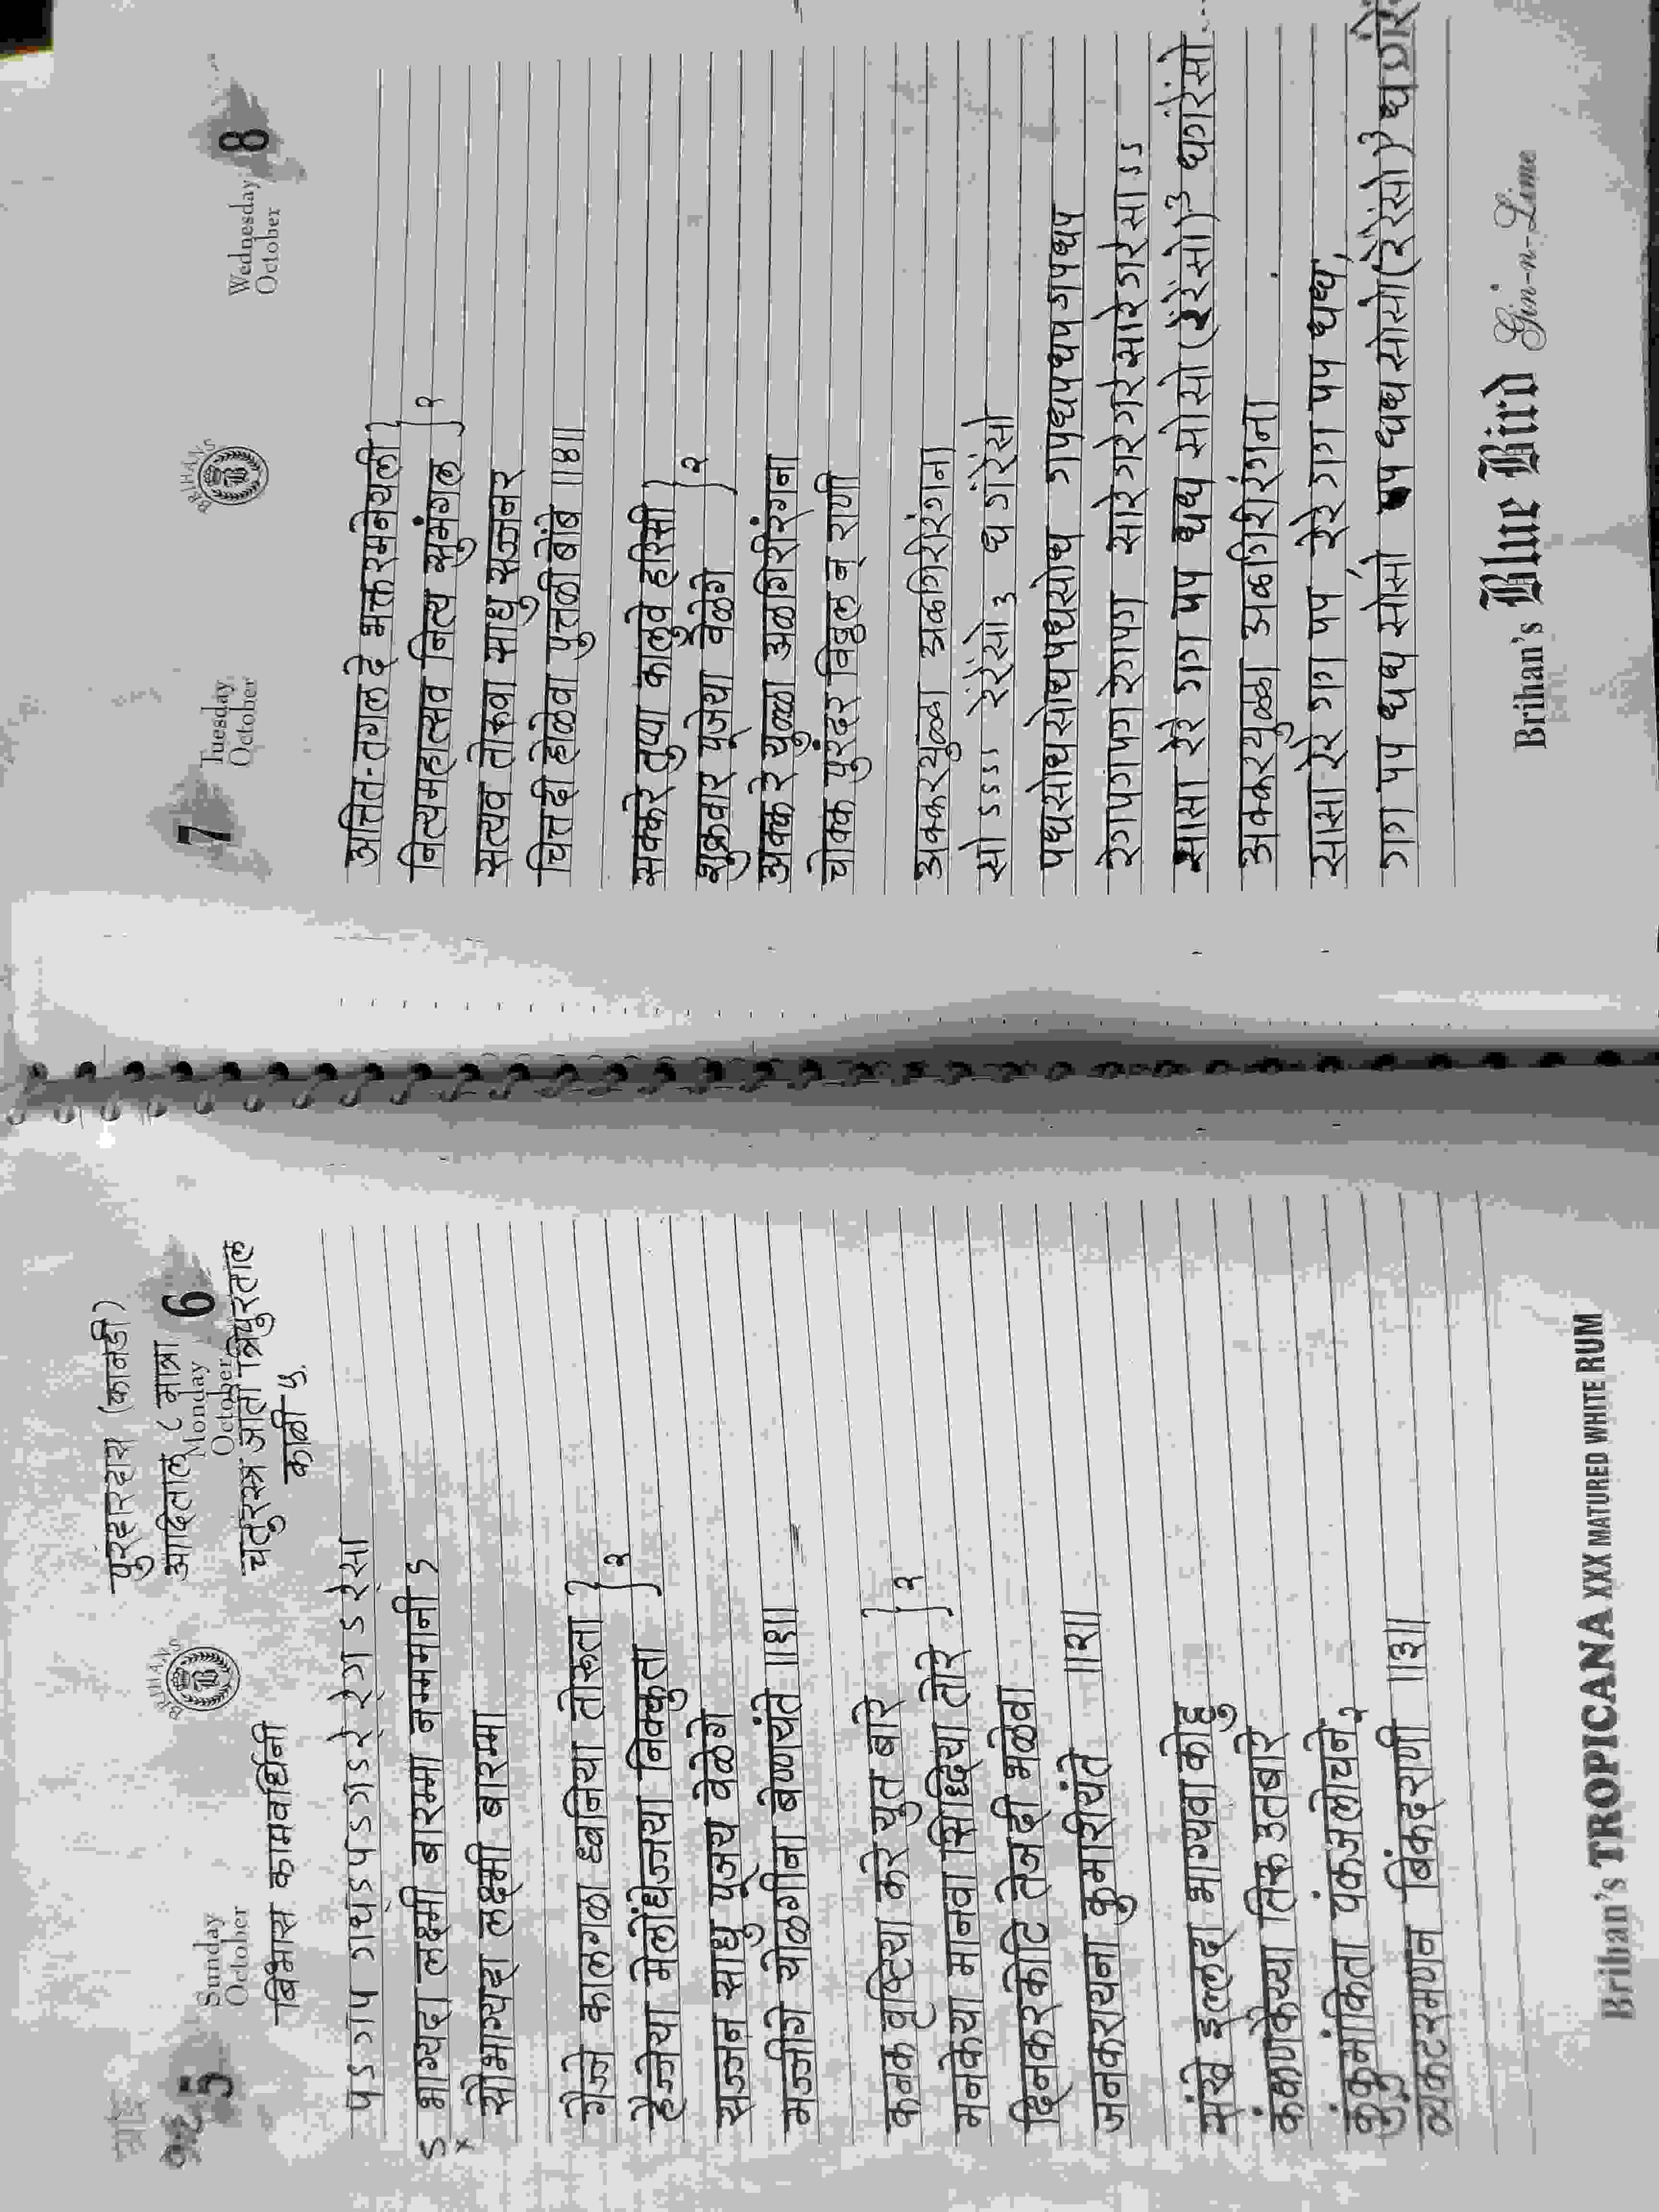 पुरंदारदास (कानडी)
BRIHANS
B
आदिताल ८ मात्रा
5
Sunday
October
Monday
October
6
चतुरस्त्र जाती त्रिपुरताल
बिभास कामवर्धिनी
काळी ५.
पऽगप गध़ऽपऽगऽरे॒ रे॒ग ऽ रे॒सा
ऽ भाग्यदा लक्ष्मी बारम्मा नम्ममानी ऽ
x
सौभाग्यदा लक्ष्मी बारम्मा
गैज्जे कालगळा ध्वनिया तोरूता
हैज्जेया मेलोंधेज्जया निक्कुता } २
सज्जन साधु पूजय वेळेगे
मज्जीगे योळगीना बेण्णयंते ॥१॥
कनक वृष्टिया करे युत बारे
मनकेया मानवा सिद्धिया तोरे } २
दिनकरकोटि तेजदी भळेवा
जनकरायना कुमारीयंते ॥२॥
संखे इल्लदा भाग्यवा कोट्टु
कंकणकैय्या तिरू उतबारे
कुंकुमांकिता पंकजलोचने २
व्यंकटरमणन बिंकदराणी ॥३॥
Brihan's TROPICANA XXX MATURED WHITE RUM
7
Tuesday
October
BRIHANS
B
Wednesday
October
8
अत्तित-तगल दे भक्तरमनेयली
नित्यमहात्सव नित्य सुमंगल } २
सत्यव तोरूवा साधु सज्जनर
चित्तदी होळेवा पुत्तळी बोंबे ॥४॥
सक्करे तुप्पा कालुवे हरिसी
शुक्रवार पूजेया वेळेगे } २
अक्क रे युळ्ळा अळगिरीरंगना
चोक्क पुरंदर विठ्ठल न् राणी
अक्करयुळ्ळा अळगिरीरंगना
सो ऽऽऽऽ रेंरेंसो ३ ध गंरेंसो
पधसोधसोधपधसोध गपधपधप गपधप
रेगपगपग रेगपग सारेगरेगरेसारेगरेसाऽऽ
सासा रेरे गग पप धध सोसो (रेंरेंसो)३ धगंरेंसो...
अक्करयुळ्ळा अळगिरीरंगना
सासा रेरे गग पप, रेरे गग पप धध,
गग पप धध सोसो पप धध सोसो(रेंरेंसो)३ ध गंरें
Brihan's Blue Bird Gin-n-Lime